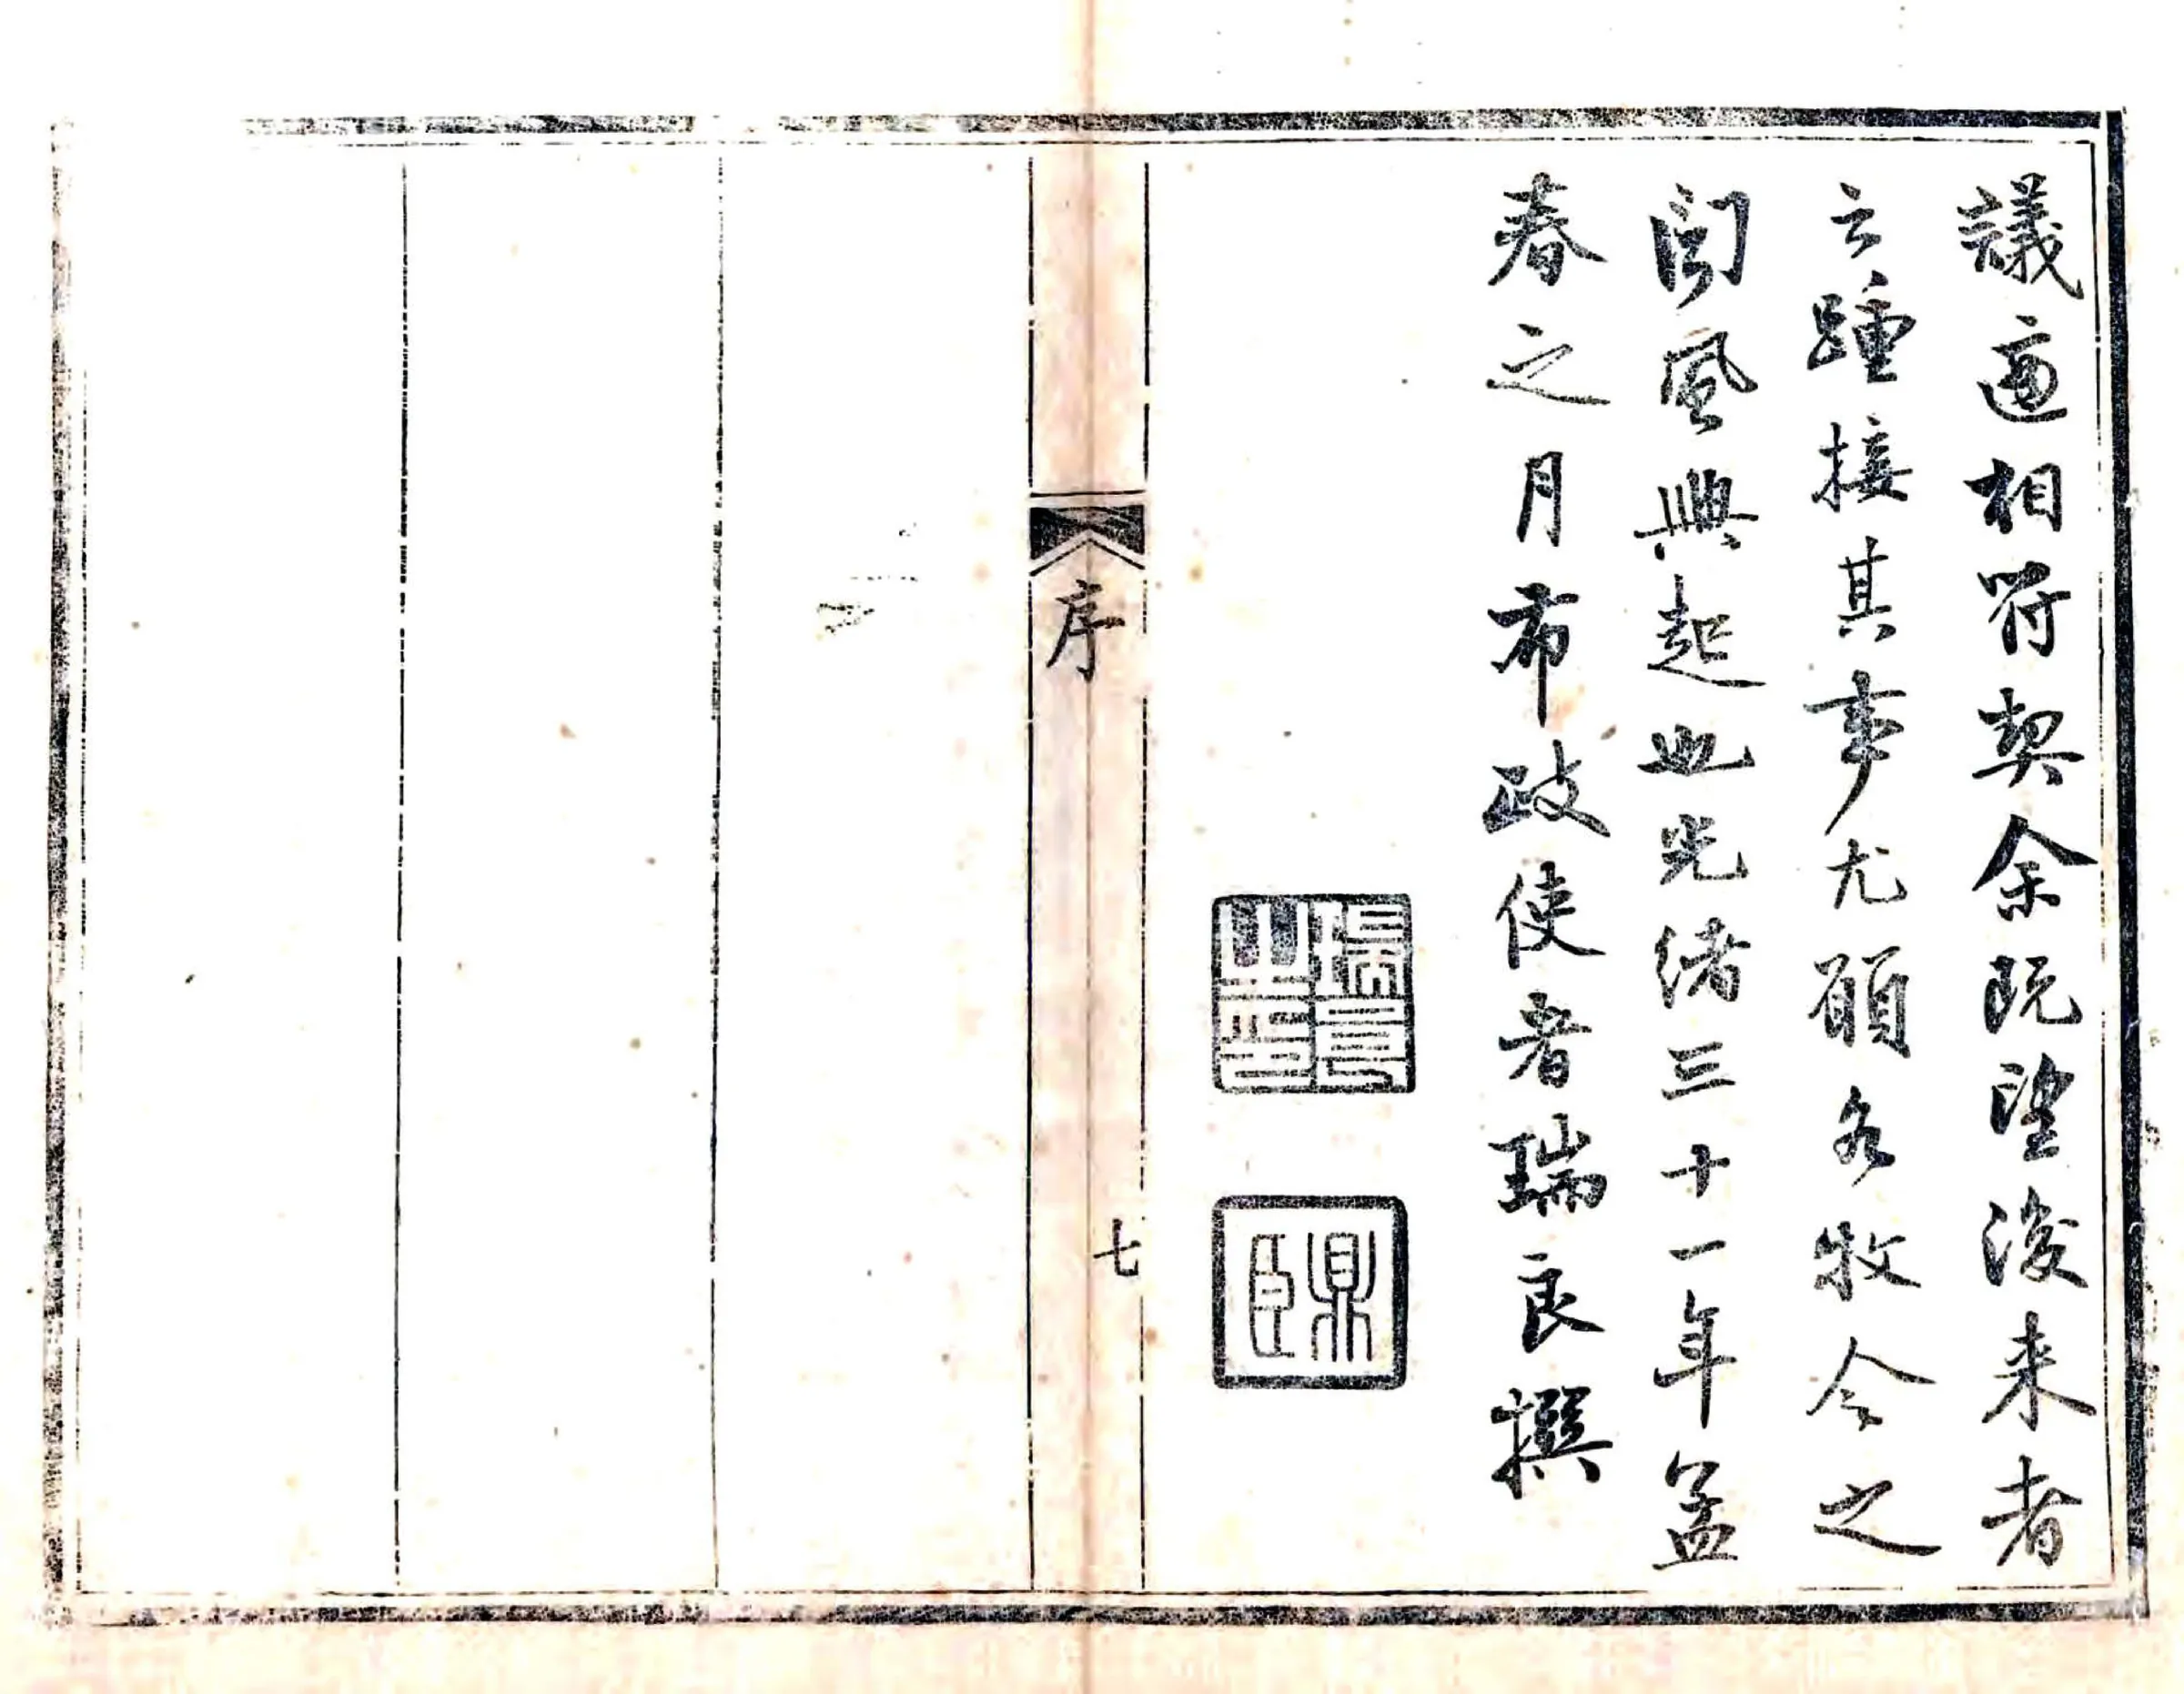 議適相符契余既望後来者
之踵接其事尤願各牧令之
聞風興起也光緒三十一年孟
春之月布政使者瑞良撰
瑞良之印
鼎臣
序
七